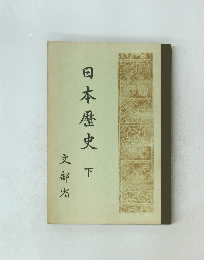 日本歷史 下
文部省